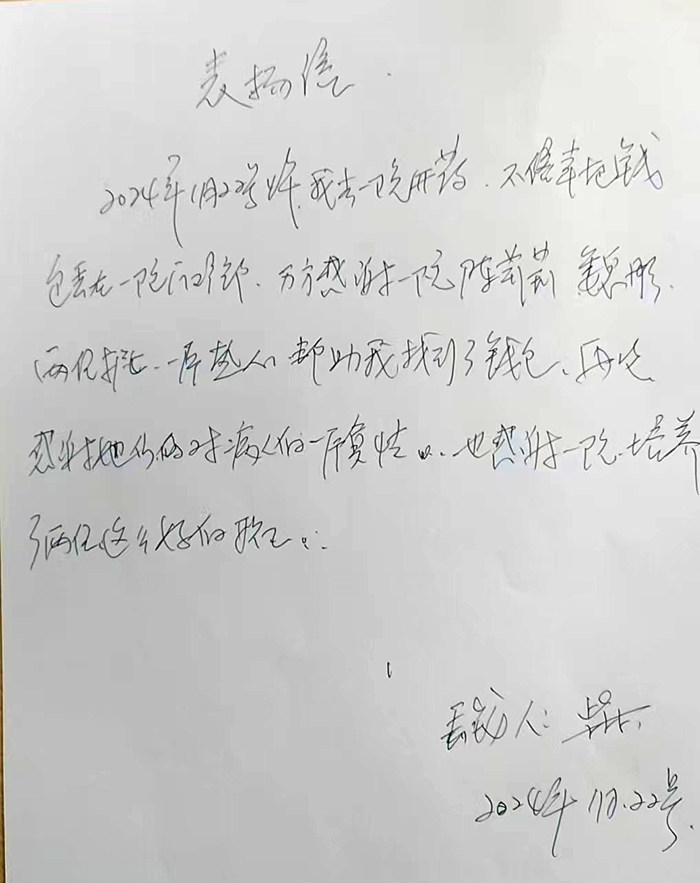 表扬信
2024年1月22号我去一院开药.不慎幸把钱
包丢在一院门诊部.万分感谢一院陈莉莉 魏彤
两位护士.一片热心帮助我找到了钱包、再次
感谢她们的对病人的一片真情。.也感谢一院.培养
了两位这么好的护士.
人:
2024年1月.22号.